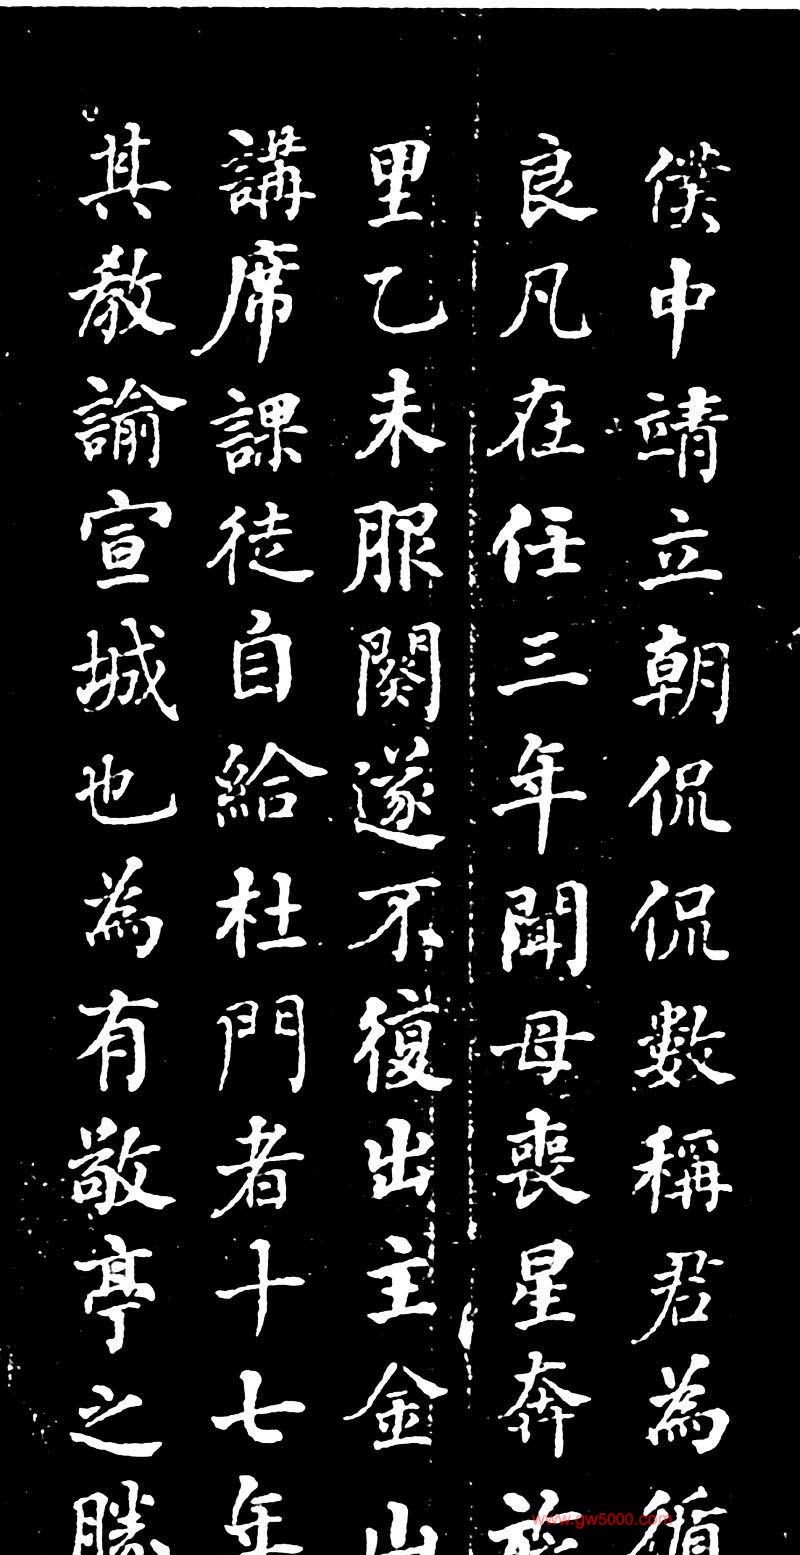 僕中靖立朝侃侃數稱君為循
良凡在任三年聞母喪星奔旋
里乙未服闋遂不復出主金山
講席課徒自給杜門者十七年
其教諭宣城也為有敬亭之勝
www.gw5000.com